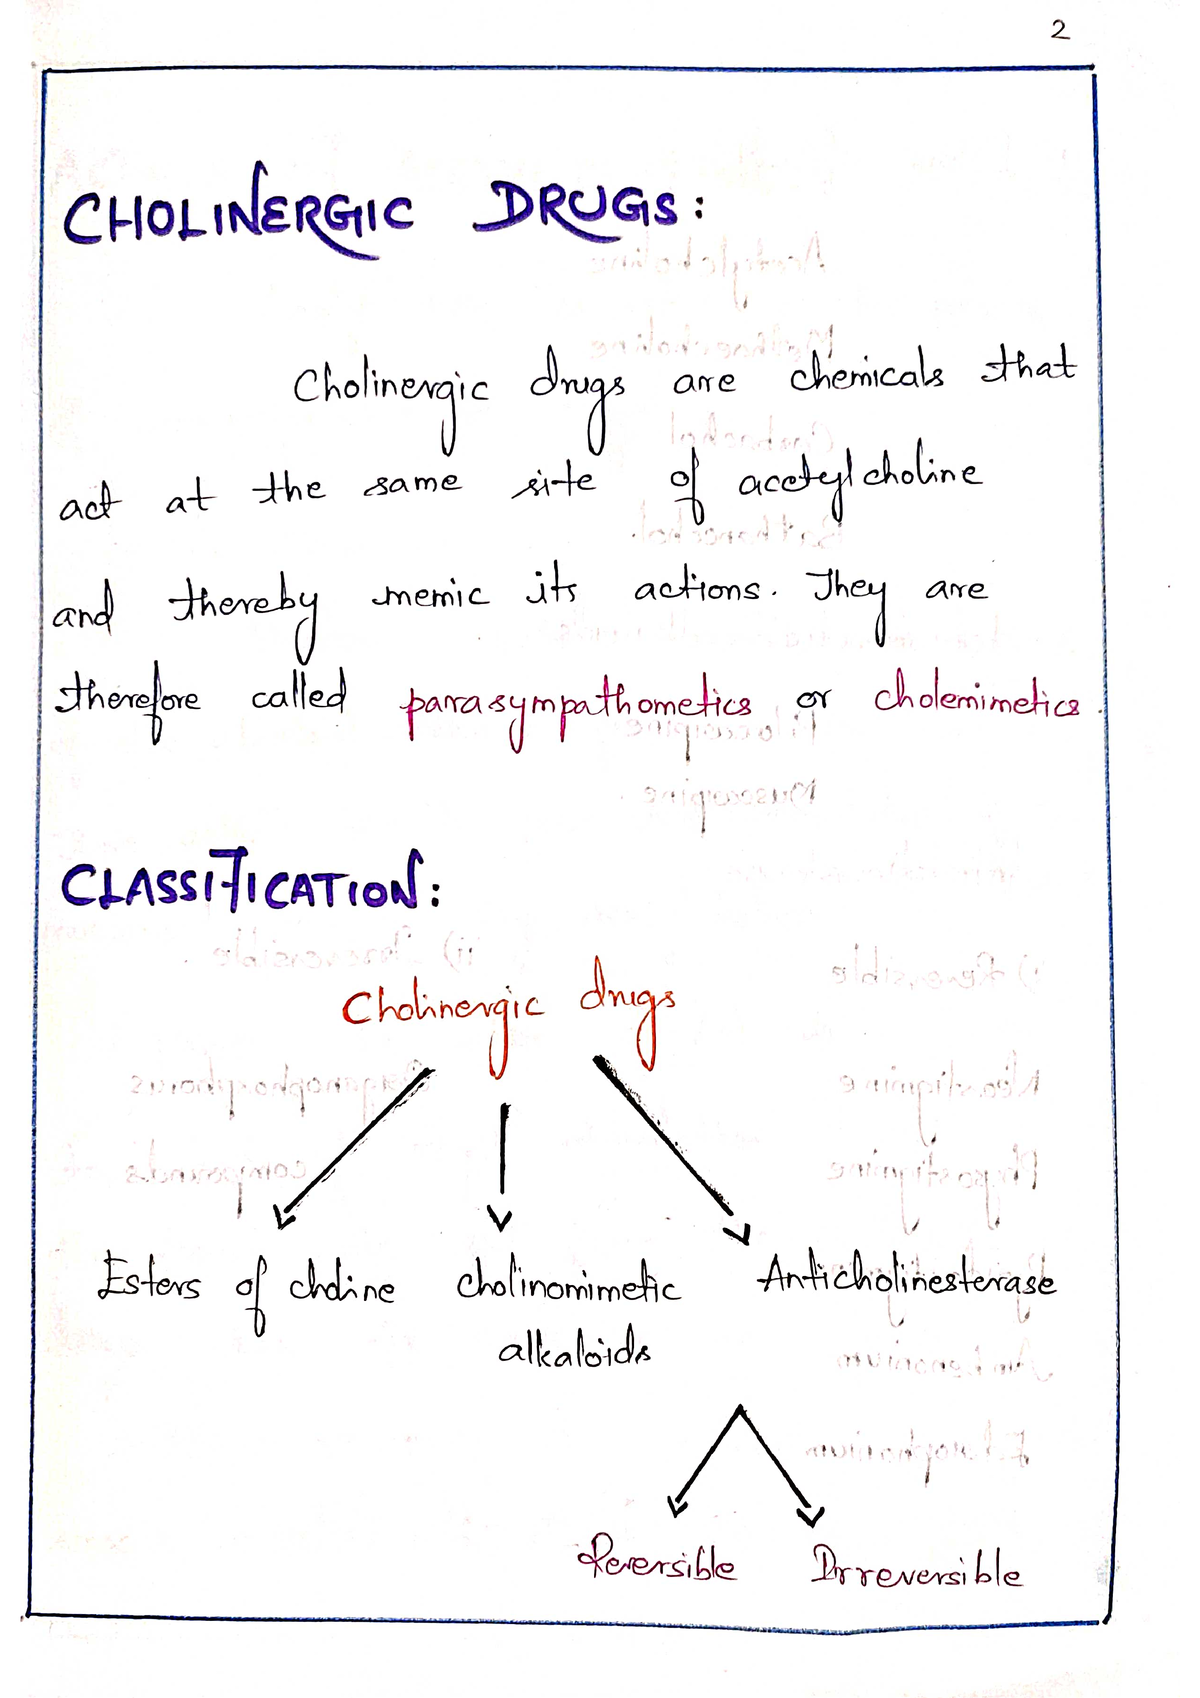 2
CHOLINERGIC DRUGS:
Cholinergic drugs are chemicals that
act at the same site of acetylcholine
and thereby memic its actions. They are
therefore called parasympathometics or cholemimetics.
CLASSIFICATION:
Cholinergic drugs
Esters of choline cholinomimetic Anticholinesterase
alkaloids
Reversible Irreversible